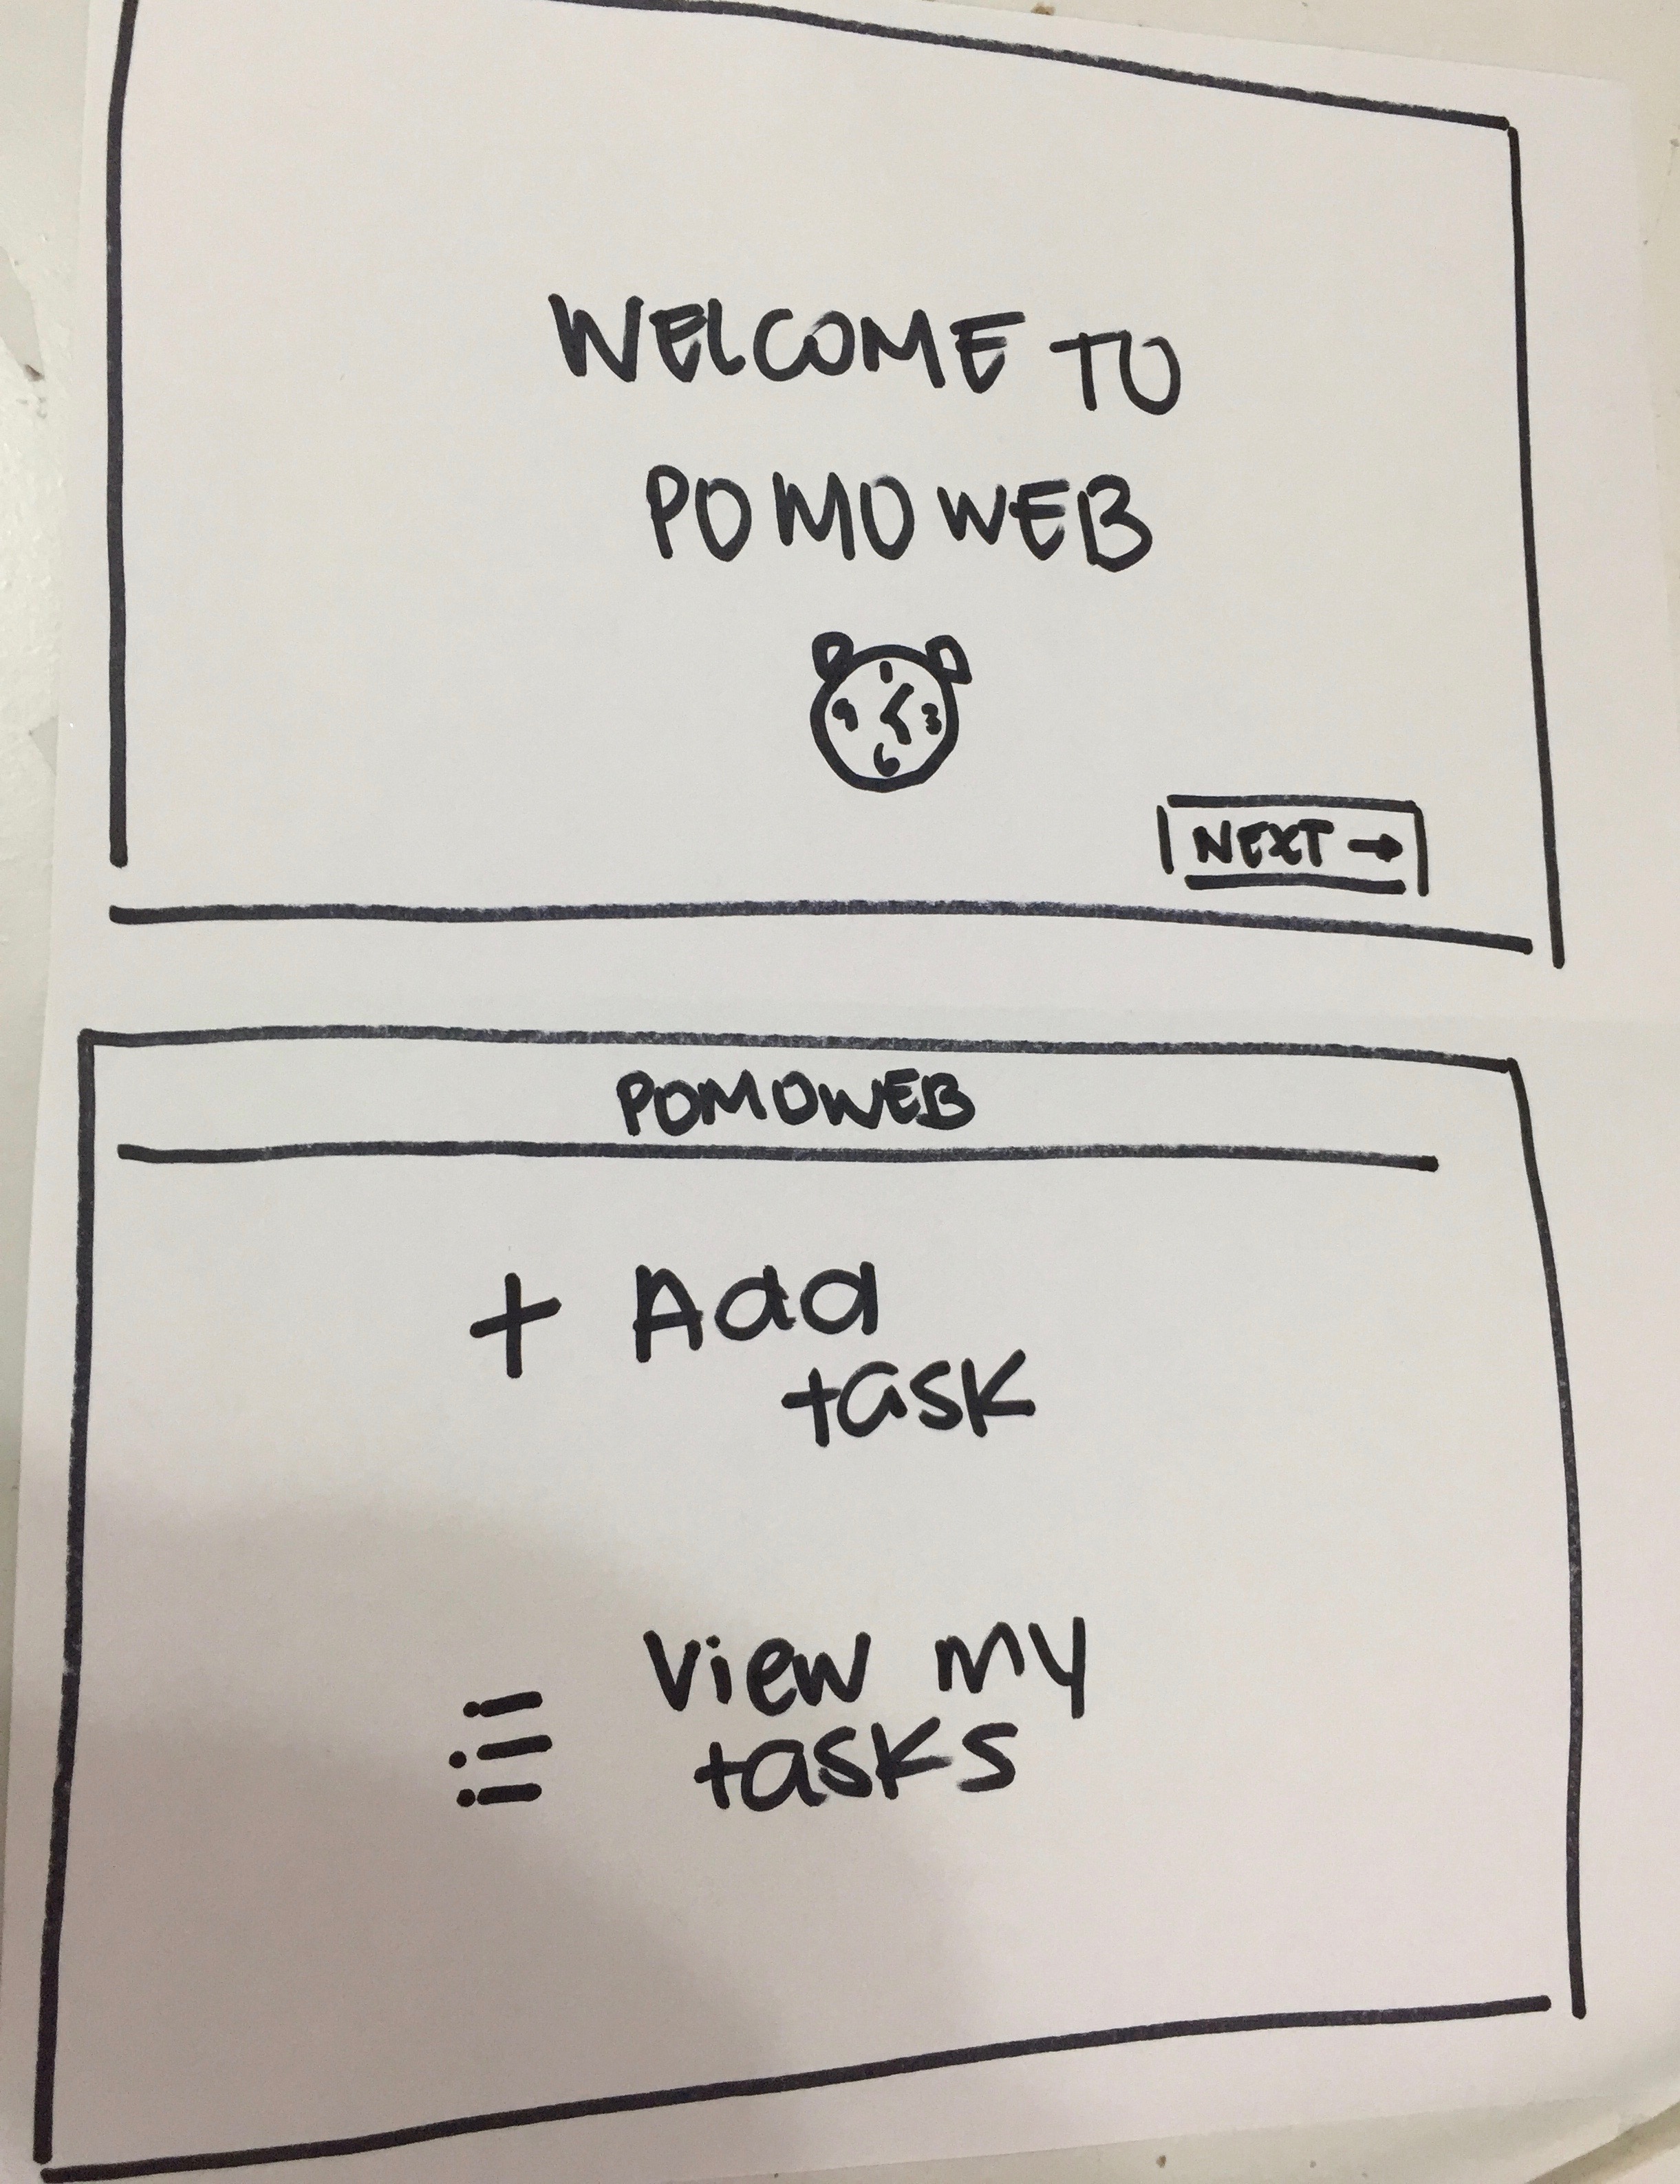 WELCOME TO
POMOWEB
9 3
6
NEXT →
POMOWEB
+ Add
task
View my
tasks